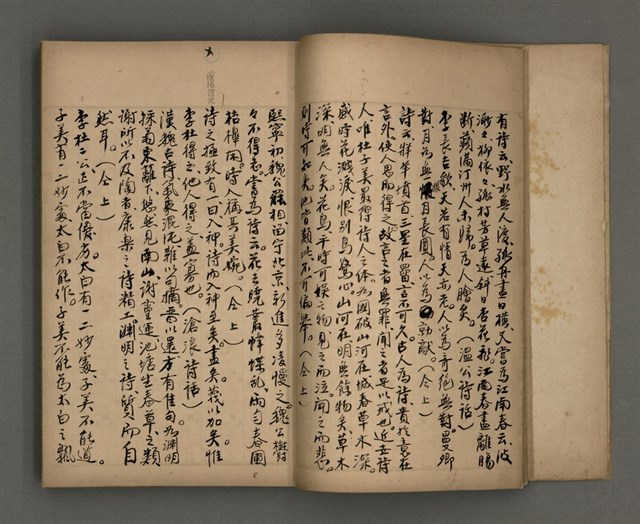 有詩云野水無人渡孤舟盡日橫又嘗為江南春云波
渺々柳依々孤村芳草遠斜日杏花飛江南春盡離腸
斷蘋滿汀州人未歸。為人膾矣。(溫公詩話)
李長吉歌天若有情天亦老人以為奇絕無對曼卿
對月如無恨月長圓人以為勍敵。(仝上)
詩云牂羊墳首三星在罶言不可久古人為詩貴於意在
言外使人思而得之故言之者無罪聞之者足以戒也近世詩
人唯杜子美最得詩人之体如國破山河在城春草木深。
感時花濺淚恨別鳥驚心。山河在明無餘物矣草木
深明無人矣花鳥平時可娛之物見之而泣聞之而悲。
則時可知矣他皆類此不可徧舉。(仝上)
熙寧初魏公罷相留守北京新進多凌慢之魏公鬱
々不得志嘗為詩云花去曉叢蜂蝶亂雨勻春圃
桔橰閑。時人稱其美婉。(仝上)
詩之極致有一曰入神。詩而入神至矣盡矣蔑以加矣惟
李杜得之他人得之蓋寡也。(滄浪詩話)
漢魏古詩氣象混沌難以句摘晉以還方有佳句如淵明
採菊東籬下悠然見南山謝靈運池塘生春草之類
謝所以不及陶者康樂之詩精工淵明之詩質而自
然耳。(仝上)
李杜二公正不當優劣太白有一二妙處子美不能道。
子美有一二妙處太白不能作。子美不能為太白之飄